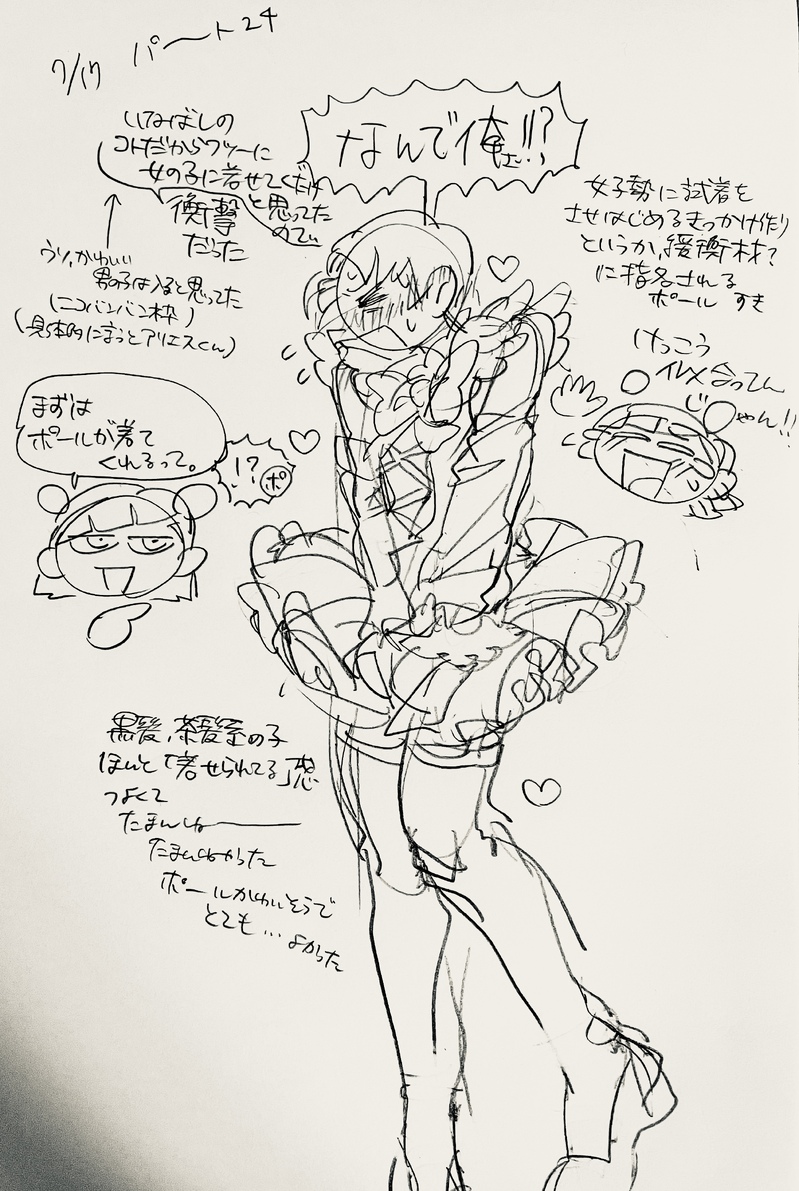 7/17 パート24
なんで俺さ!!?
いなばしの
コトだからフツーに
女の子に着せてくだけ
と思ってた
ので
衝撃
だった
ウソ、かわいい
男の子は入ると思ってた
(ニコバンバン枠)
(具体的に言うとアリエスくん)
女子勢に試着を
させはじめるきっかけ作り
というか、緩衝材?
に指名される
ポール すき
けっこう
イケメ合ってん
じゃん!!
まずは
ポールが着て
くれるって。
!?
ポ
黒髪、茶髪系の子
ほんと「着せられてる」感
つよくて
たまんねーー
たまんねかった
ポールかわいそうで
とても…よかった